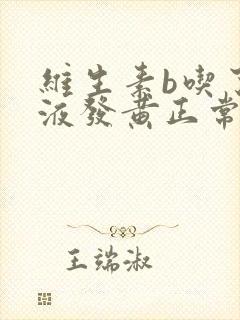 維生素b喫
液發黃正常
王端淑